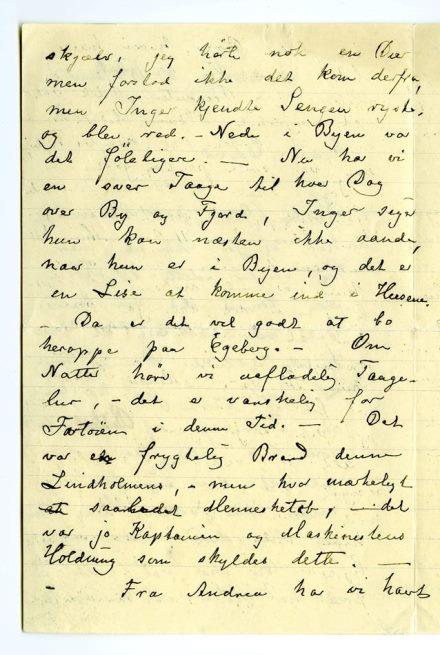 skjælv, jeg hørte nok en Dur
men forstod ikke det kom derfra,
men Inger kjendte Sengen ryste,
og blev red. – Nede i Byen var
det føleligere. — Nu har vi
en svær Taage til hver Dag
over By og Fjord, Inger siger
hun kan næsten ikke aande,
naar hun er i Byen, og det er
en Lise at komme ind i Husene.
– Da er det vel godt at bo
heroppe paa Egeberg. – Om
Natten hører vi uafladelig Taage-
lur, – det er vanskelig for
Fartøien i denne Tid. — Det
var en frygtelig Brand denne
Lindholmens, – men hvor mærkeligt
at saa Mennesketab, – det
var jo Kaptainen og Maskinestens
Holdning som skyldes dette. —
– Fra Andrea har vi havt